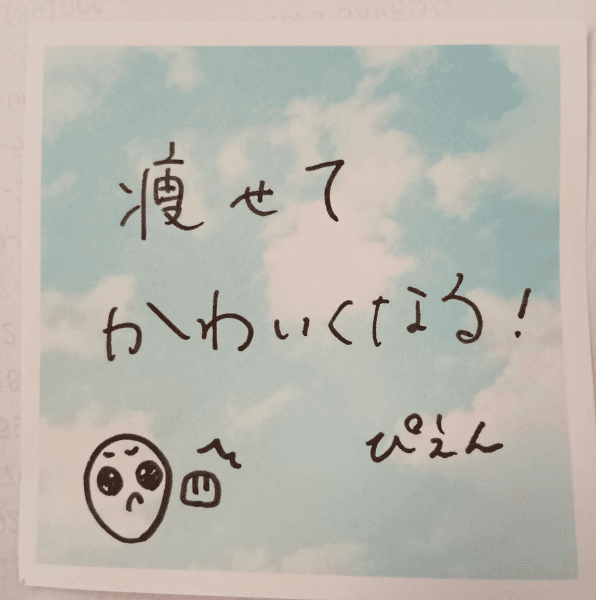 痩せて
かわいくなる!
ぴえん